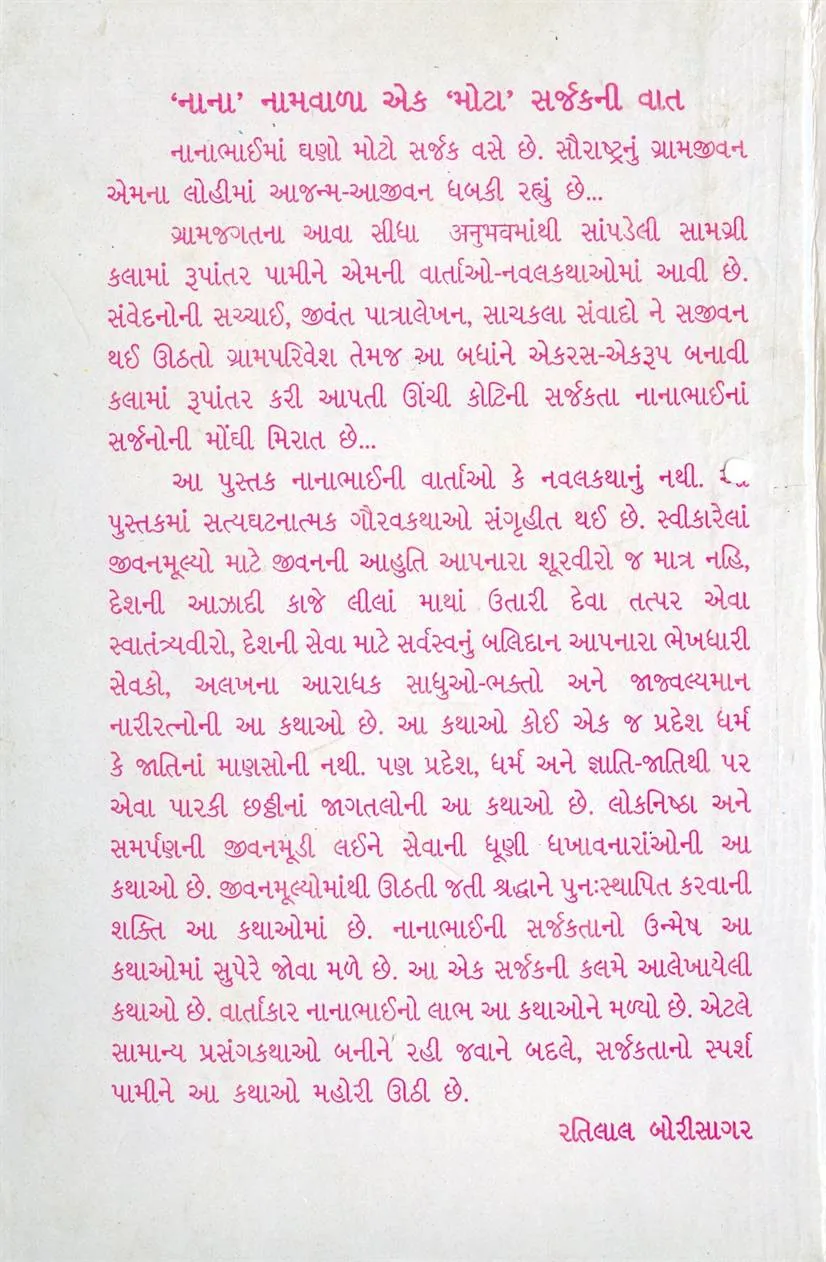 ‘નાના’ નામવાળા એક ‘મોટા’ સર્જકની વાત
નાનાભાઈમાં ઘણો મોટો સર્જક વસે છે. સૌરાષ્ટ્રનું ગ્રામજીવન
એમના લોહીમાં આજન્મ-આજીવન ધબકી રહ્યું છે...
ગ્રામજગતના આવા સીધા अनुभवમાંથી સાંપડેલી સામગ્રી
કલામાં રૂપાંતર પામીને એમની વાર્તાઓ-નવલકથાઓમાં આવી છે.
સંવેદનોની સચ્ચાઈ, જીવંત પાત્રાલેખન, સાચકલા સંવાદો ને સજીવન
થઈ ઊઠતો ગ્રામપરિવેશ તેમજ આ બધાંને એકરસ-એકરૂપ બનાવી
કલામાં રૂપાંતર કરી આપતી ઊંચી કોટિની સર્જકતા નાનાભાઈનાં
સર્જનોની મોંઘી મિરાત છે...
આ પુસ્તક નાનાભાઈની વાર્તાઓ કે નવલકથાનું નથી. આ
પુસ્તકમાં સત્યઘટનાત્મક ગૌરવકથાઓ સંગૃહીત થઈ છે. સ્વીકારેલાં
જીવનમૂલ્યો માટે જીવનની આહુતિ આપનારા શૂરવીરો જ માત્ર નહિ,
દેશની આઝાદી કાજે લીલાં માથાં ઉતારી દેવા તત્પર એવા
સ્વાતંત્ર્યવીરો, દેશની સેવા માટે સર્વસ્વનું બલિદાન આપનારા ભેખધારી
સેવકો, અલખના આરાધક સાધુઓ-ભક્તો અને જાજ્વલ્યમાન
નારીરત્નોની આ કથાઓ છે. આ કથાઓ કોઈ એક જ પ્રદેશ ધર્મ
કે જાતિનાં માણસોની નથી. પણ પ્રદેશ, ધર્મ અને જ્ઞાતિ-જાતિથી પર
એવા પારકી છઠ્ઠીનાં જાગતલોની આ કથાઓ છે. લોકનિષ્ઠા અને
સમર્પણની જીવનમૂડી લઈને સેવાની ધૂણી ધખાવનારાંઓની આ
કથાઓ છે. જીવનમૂલ્યોમાંથી ઊઠતી જતી શ્રદ્ધાને પુનઃસ્થાપિત કરવાની
શક્તિ આ કથાઓમાં છે. નાનાભાઈની સર્જકતાનો ઉન્મેષ આ
કથાઓમાં સુપેરે જોવા મળે છે. આ એક સર્જકની કલમે આલેખાયેલી
કથાઓ છે. વાર્તાકાર નાનાભાઈનો લાભ આ કથાઓને મળ્યો છે. એટલે
સામાન્ય પ્રસંગકથાઓ બનીને રહી જવાને બદલે, સર્જકતાનો સ્પર્શ
પામીને આ કથાઓ મહોરી ઊઠી છે.
રતિલાલ બોરીસાગર